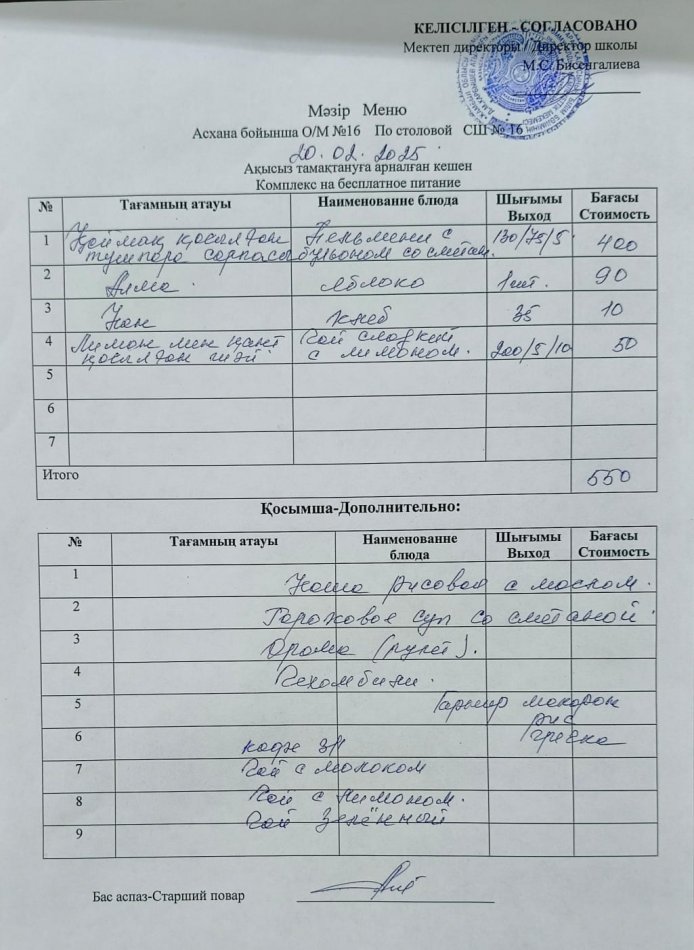 КЕЛІСІЛГЕН - СОГЛАСОВАНО
Мектеп директоры / Директор школы
М.С. Бисенгалиева
Мәзір Меню
Асхана бойынша О/М №16 По столовой СШ № 16
20.02.2025
Ақысыз тамақтануға арналған кешен
Комплекс на бесплатное питание
№ Тағамның атауы Наименованне блюда Шығымы Выход Бағасы Стоимость
1 Қаймақ қосылған тұшпара сорпасы Пельмени с бульоном со сметан. 130/75/5 400
2 Алма Яблоко 1 шт. 90
3 Нан хлеб 35 10
4 Лимон мен қант қосылған шәй Чай сладкий с лимоном. 200/5/10 50
5
6
7
Итого 550
Қосымша-Дополнительно:
№ Тағамның атауы Наименованне блюда Шығымы Выход Бағасы Стоимость
1 Каша рисовая с маслом.
2 Гороховое суп со сметаной.
3 Орама (рулет).
4
5 Гарнир макарон
рис
6 кофе 3/1 гречка
7 Чай с молоком
8 Чай с лимоном.
Чай зелённый
9
Бас аспаз-Старший повар